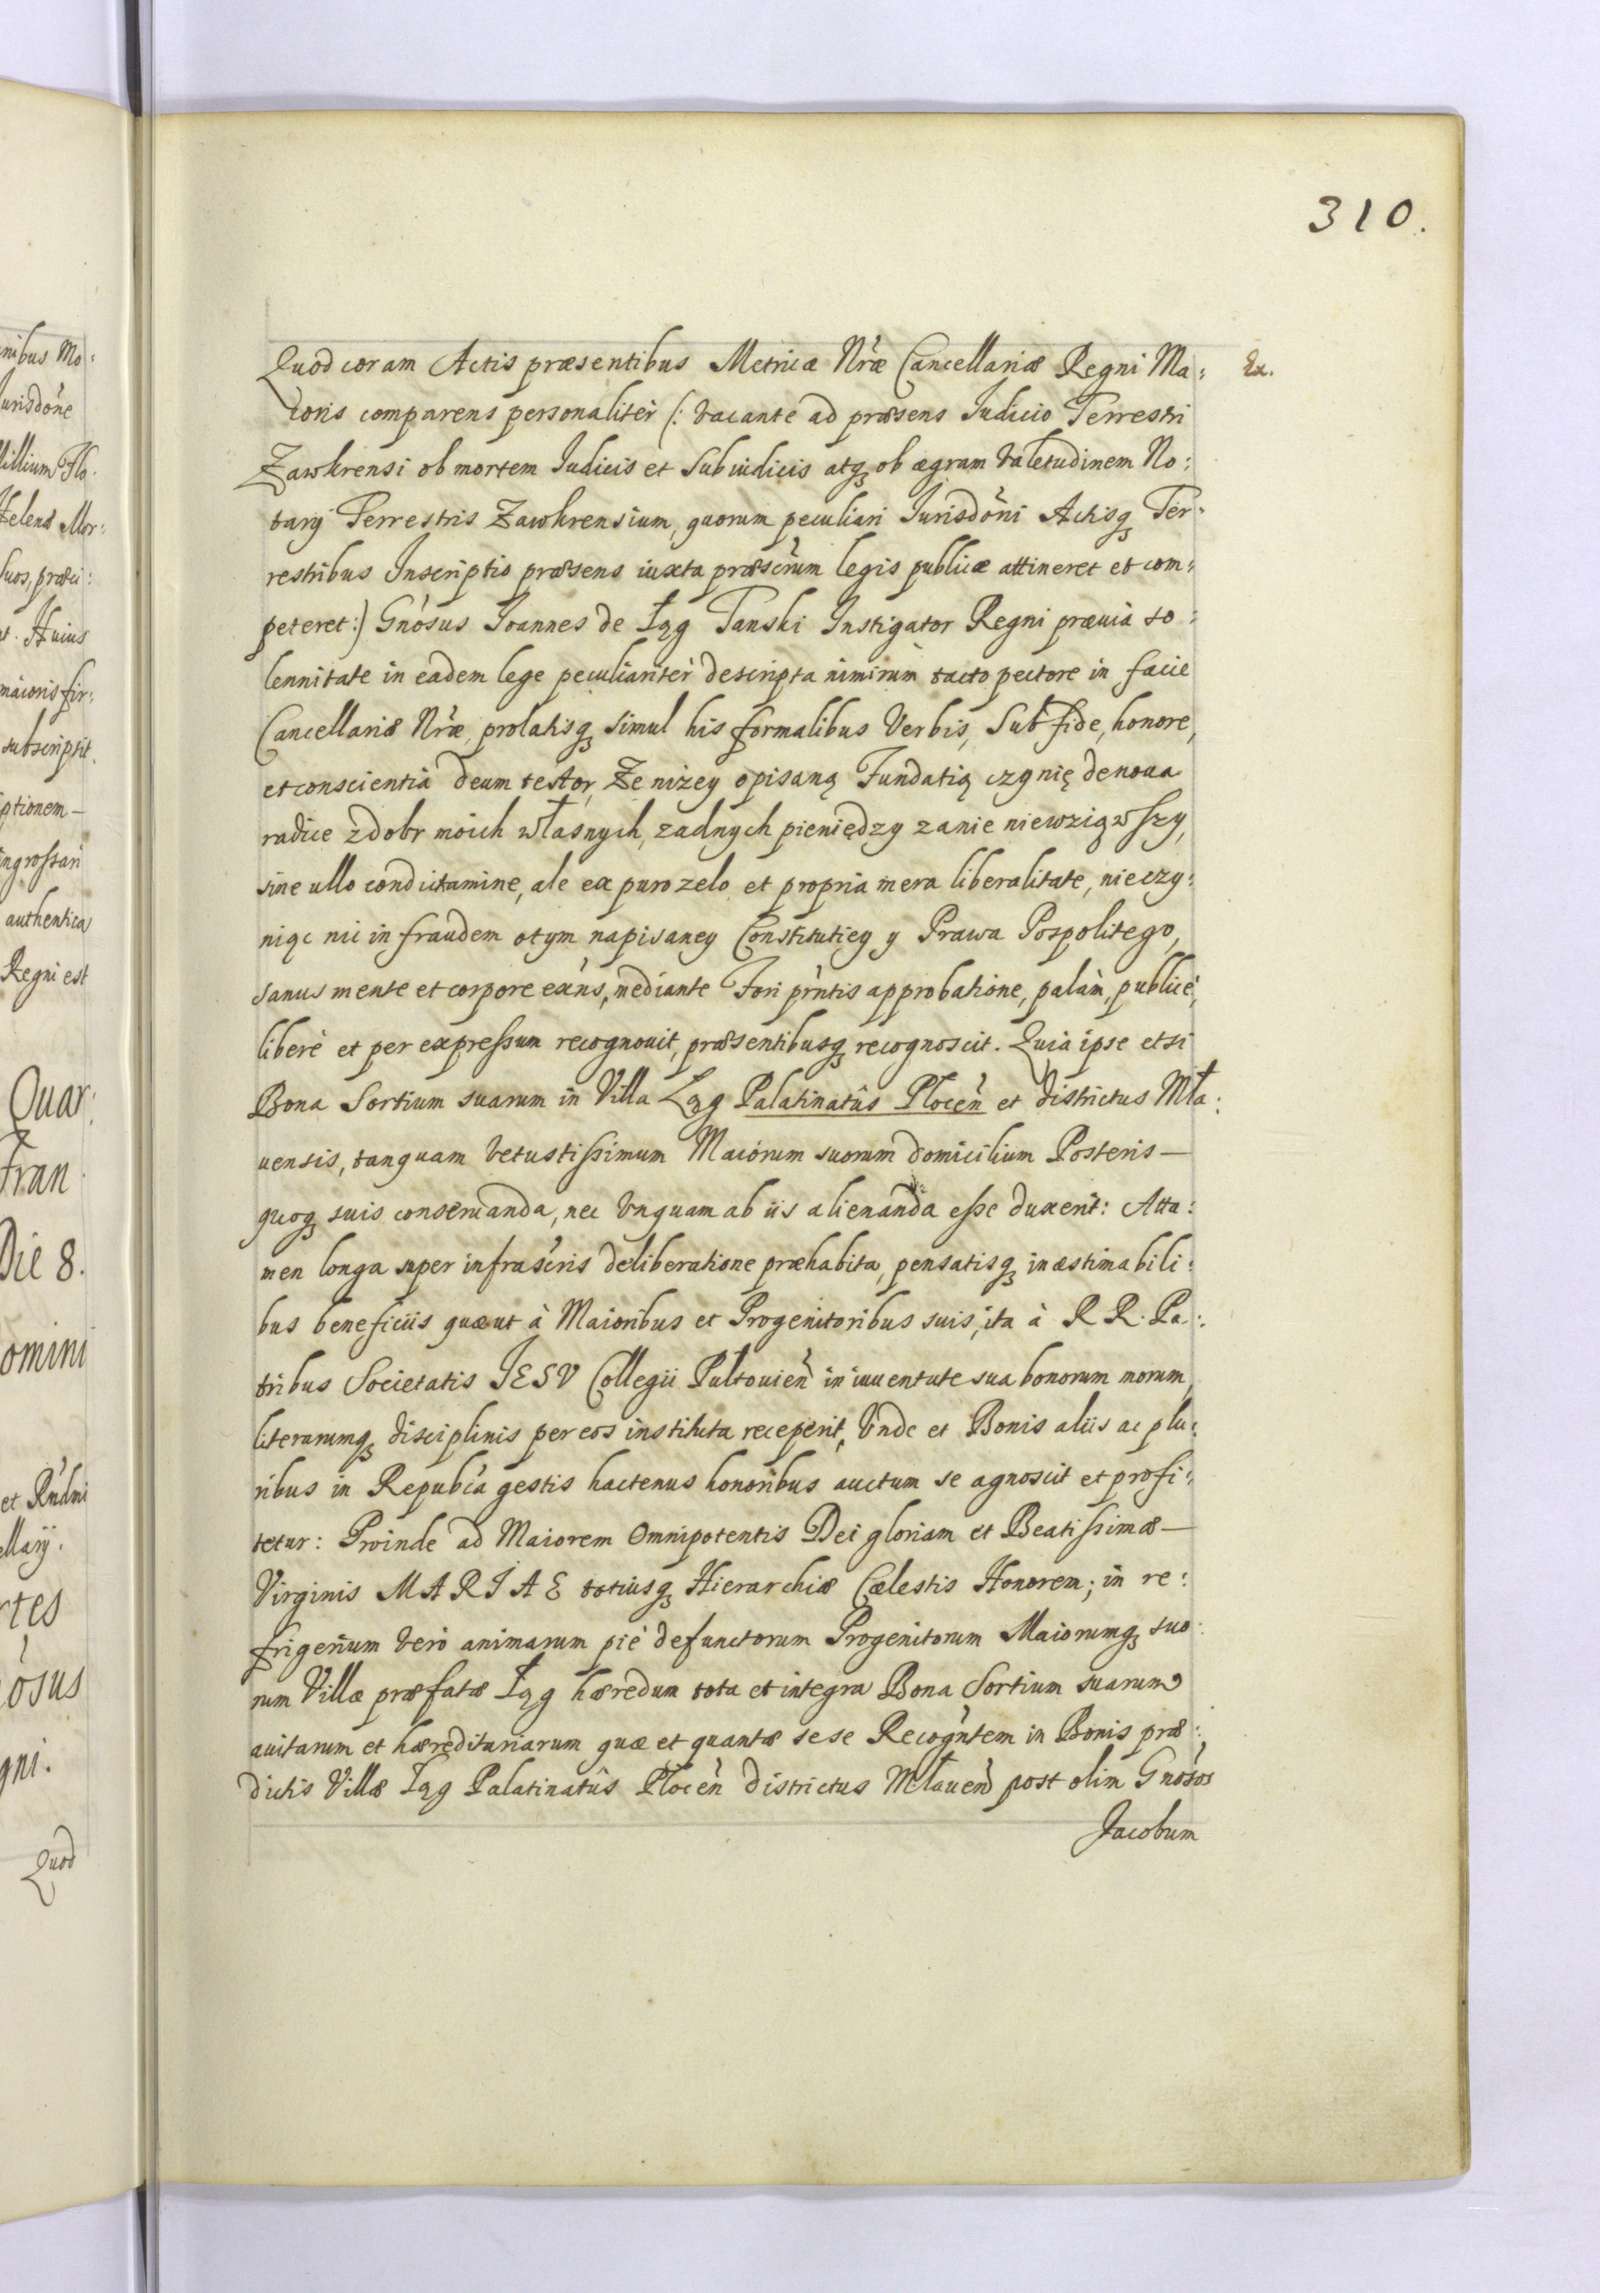 310.
Quod coram Actis præsentibus Metricæ Nr̃æ Cancellariæ Regni Ma: Ex.
ioris comparens personalitèr (: vacante ad præsens Iudicio Terrestri
Zawkrensi ob mortem Iudicis et Subiudicis atq₃ ob ægram valetudinem No:
tarÿ Terrestris Zawkrensium, quorum peculiari Iurisdõni Actisq₃ Ter:
restribus Inscriptio præsens iuxta præscr̃um legis publicæ attineret et com:
peteret:) Gnõsus Ioannes de Łąg Tanski Instigator Regni præuiâ so:
lennitate in eadem lege peculiaritèr descripta nimirùm tacto pectore in facie
Cancellariæ Nr̃æ, prolatisq₃ simul his formalibus Verbis, Sub fide, honore,
et conscientia deum testor, Ze nizey opisaną Fundatią czynię denoua
radice zdobr moich własnych, zadnych pieniędzy zanie niewziąwszy,
sine ullo condictamine, ale ex puro zelo et propria mera liberalitate, nieczy:
niąc nic in fraudem otym napisaney Constitutiey y Prawa Pospolitego,
sanus mente et corpore exñs, mediante Fori pr̃ntis approbatione, palàm, publicè,
liberè et per expressum recognouit, præsentibusq₃ recognoscit. Quia ipse etsi
Bona Sortium suarum in Villa Łąg Palatinatûs Płoceñ et districtus Mła:
uensis, tanquam vetustissimum Maiorum suorum domicilium Posteris —
quoq₃ suis conseruanda, nec vnquam ab iis alienanda esse duxerit: Atta:
men longa super infrascr̃is deliberatione præhabita, pensatisq₃ inæstimabili:
bus beneficiis quæ ut à Maioribus et Progenitoribus suis, ita à R R. Pa:
tribus Societatis IESV Collegii Pultouieñ in iuuentute sua bonorum morum,
literarumq₃ disciplinis per eos instituta receperit, Vnde et Bonis aliis ac plu:
ribus in Repubcã gestis hactenus honoribus auctum se agnoscit et profi:
tetur: Proinde ad Maiorem Omnipotentis Dei gloriam et Beatissimæ —
Virginis MARIAE totiusq₃ Hierarchiæ Cælestis Honorem; in re:
frigerium verò animarum piè defunctorum Progenitorum Maiorumq₃ suo:
rum Villæ præfatæ Łąg hæredum tota et integra Bona Sortium suarum
auitarum et hæreditariarum quæ et quantæ sese Recogñtem in Bonis præ:
dictis Villæ Łąg Palatinatûs Płoceñ districtus Mławeñ post olim Gnõsos
Jacobum